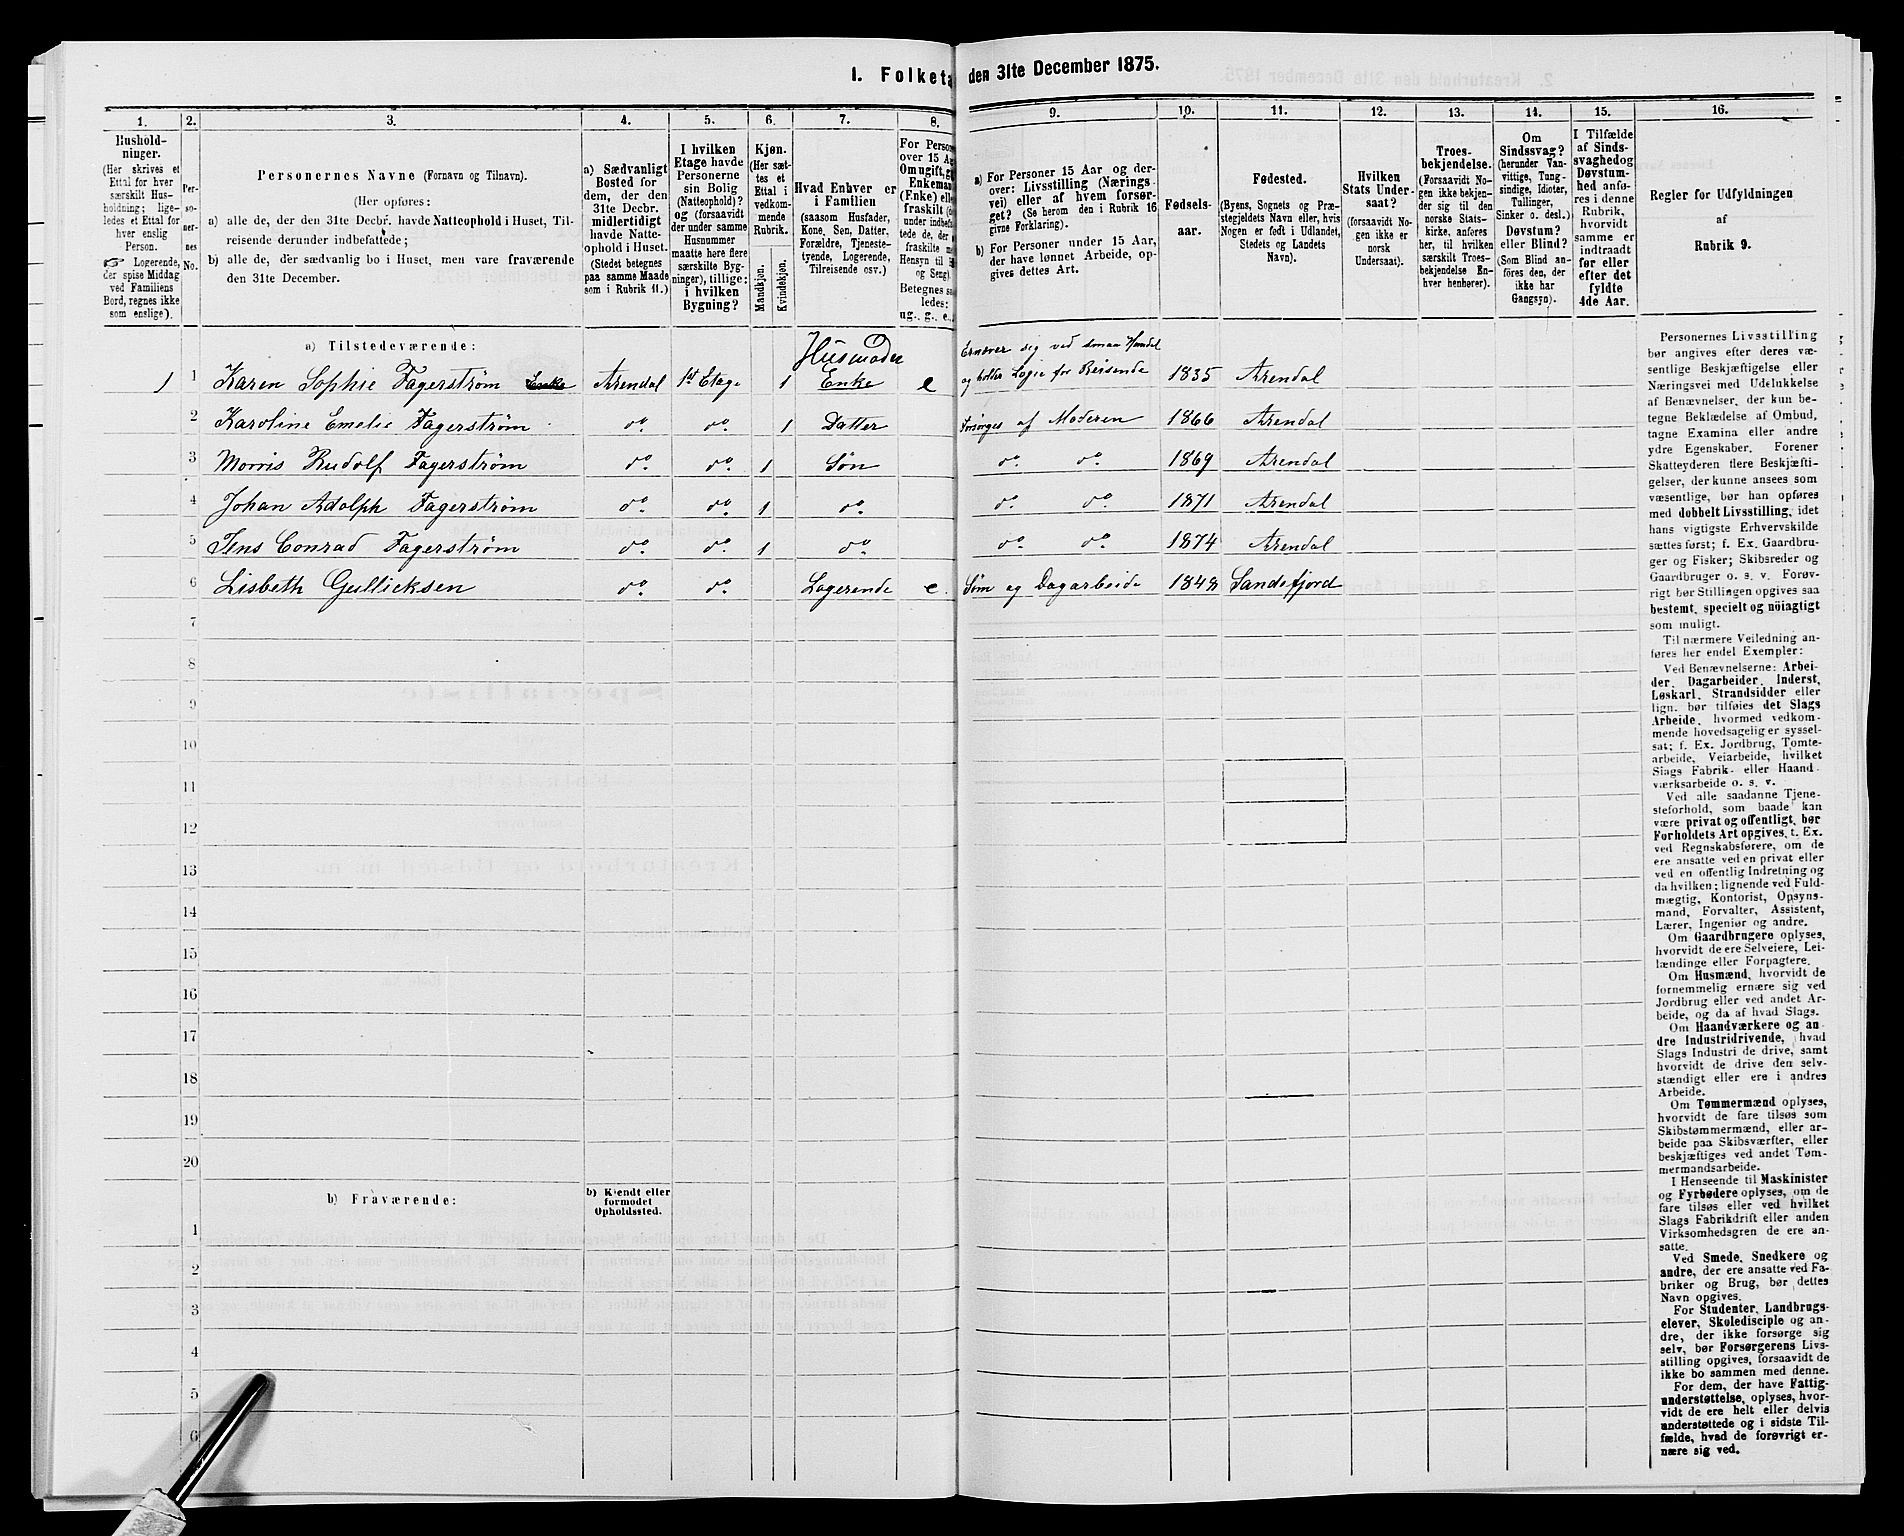 I. Folketa den 31te December 1875.
1. 2. 3. 4. 5. 6. 7. 8. 9. 10. 11. 12. 13. 14. 15. 16.
Hushold-
ninger.
(Her skrives et
Ettal for hver
særskilt Hus-
holdning; lige-
ledes et Ettal for
hver enslig
Person.
☞ Logerende,
der spise Middag
ved Familiens
Bord, regnes ikke
som enslige).
Per-
so-
ner-
nes
No.
Personernes Navne (Fornavn og Tilnavn).
(Her opføres:
a) alle de, der den 31te Decbr. havde Natteophold i Huset, Til-
reisende derunder indbefattede;
b) alle de, der sædvanlig bo i Huset, men vare fraværende
den 31te December.
a) Sædvanligt
Bosted for
dem, der den
31te Decbr.
midlertidigt
havde Natte-
ophold i Huset.
(Stedet betegnes
paa samme Maade
som i Rubrik 11.)
I hvilken
Etage havde
Personerne
sin Bolig
(Natteophold)?
og (forsaavidt
der under samme
Husnummer
maatte høre flere
særskilte Byg-
ninger), tillige:
i hvilken
Bygning?
Kjøn.
(Her sæt-
tes et
Ettal i
vedkom-
mende
Rubrik.
Mandkjøn.
Kvindekjøn.
Hvad Enhver er
i Familien
(saasom Husfader,
Kone, Søn, Datter,
Forældre, Tjeneste-
tyende, Logerende,
Tilreisende osv.)
For Person
over 15 Aa
Om ugift, gi
Enkeman
(Enke) elle
fraskilt (d
under indbe
tede de, der
fraskilte me
Hensyn til B
og Seng).
Betegnes sa
ledes:
ug., g., e.,
a) For Personer 15 Aar og der-
over: Livsstilling (Nærings
vei) eller af hvem forsør-
get? (Se herom den i Rubrik 16
givne Forklaring).
b) For Personer under 15 Aar,
der have lønnet Arbeide, op-
gives dettes Art.
Fødsels-
aar.
Fødested.
(Byens, Sognets og Præ-
stegjeldets Navn eller, hvis
Nogen er født i Udlandet,
Stedets og Landets
Navn).
Hvilken
Stats Under-
saat?
(forsaavidt No-
gen ikke er
norsk
Undersaat).
Troes-
bekjendelse.
(Forsaavidt No-
gen ikke bekjen-
der sig til den
norske Stats-
kirke, anføres
her, til hvilken
særskilt Troes-
bekjendelse En-
hver henhører).
Om
Sindssvag?
(herunder Van-
vittige, Tung-
sindige, Idioter,
Tullinger,
Sinker o. desl.)
Døvstum?
eller Blind?
(Som Blind an-
føres den, der
ikke har
Gangsyn).
I Tilfælde
af Sinds-
svaghed og
Døvstum-
hed anfø-
res i denne
Rubrik,
hvorvidt
samme er
indtraadt
før eller
efter det
fyldte
4de Aar.
Regler for Udfyldningen
af
Rubrik 9.
a) Tilstedeværende:
1 1 Karen Sophie Fagerstrøm Enke Arendal 1st Etage 1 Husmoder Enke e Ernærer sig ved smaa Handel og holder Logie for Reisende 1835 Arendal
2 Karoline Emelie Fagerstrøm do. do. 1 Datter Forsørges af Moderen 1866 Arendal
3 Morris Rudolf Fagerstrøm do. do. 1 Søn do. do. 1869 Arendal
4 Johan Adolph Fagerstrøm do. do. 1 do. do. do. 1871 Arendal
5 Jens Conrad Fagerstrøm do. do. 1 do. do. do. 1874 Arendal
6 Lisbeth Gullicksen do. do. Logerende e. Søm og Dagarbeide 1848 Sandefjord
7
8
9
10
11
12
13
14
15
16
17
18
19
20
b) Fraværende:
b) Kjendt eller
formodet
Opholdssted.
1
2
3
4
5
6
Personernes Livsstilling
bør angives efter deres væ-
sentlige Beskjæftigelse eller
Næringsvei med Udelukkelse
af Benævnelser, der kun be-
tegne Beklædelse af Ombud,
tagne Examina eller andre
ydre Egenskaber. Forener
Skatteyderen flere Beskjæfti-
gelser, der kunne ansees som
væsentlige, bør han opføres
med dobbelt Livsstilling, idet
hans vigtigste Erhvervskilde
sættes først; f. Ex. Gaardbru-
ger og Fisker; Skibsreder og
Gaardbruger o. s. v. Forøv-
rigt bør Stillingen opgives saa
bestemt, specielt og nöiagtigt
som muligt.
Til nærmere Veiledning an-
føres her endel Exempler:
Ved Benævnelserne: Arbei-
der, Dagarbeider, Inderst,
Løskarl, Strandsidder eller
lign. bør tilføies det Slags
Arbeide, hvormed vedkom-
mende hovedsagelig er syssel-
sat; f. Ex. Jordbrug, Tomte-
arbeide, Veiarbeide, hvilket
Slags Fabrik- eller Haand-
værksarbeide o. s. v.
Ved alle saadanne Tjene-
steforhold, som baade kan
være privat og offentligt, bør
Forholdets Art opgives, t. Ex.
ved Regnskabsførere, om de
ere ansatte ved en privat eller
ved en offentlig Indretning og
da hvilken; lignende ved Fuld-
mægtig, Kontorist, Opsyns-
mand, Forvalter, Assistent,
Lærer, Ingeniør og andre.
Om Gaardbrugere oplyses,
hvorvidt de ere Selveiere, Lei-
lændinge eller Forpagtere.
Om Husmænd, hvorvidt de
fornemmelig ernære sig ved
Jordbrug eller ved andet Ar-
beide, og da af hvad Slags.
Om Haandværkere og an
dre Industridrivende, hvad
Slags Industri de drive, samt
hvorvidt de drive den selv-
stændigt eller ere i andres
Arbeide.
Om Tømmermænd oplyses,
hvorvidt de fare tilsøs som
Skibstømmermænd, eller ar-
beide paa Skibsværfter, eller
beskjæftiges ved andet Tøm-
mermandsarbeide.
I Henseende til Maskinister
og Fyrbødere oplyses, om de
fare tilsøs eller ved hvilket
Slags Fabrikdrift eller anden
Virksomhedsgren de ere an-
satte.
Ved Smede, Snedkere og
andre, der ere ansatte ved Fa-
briker og Brug, bør dettes
Navn opgives.
For Studenter, Landbrugs-
elever, Skoledisciple og an-
dre, der ikke forsørge sig
selv, bør Forsørgerens Livs-
stilling opgives, forsaavidt de
ikke bo sammen med denne.
For dem, der have Fattig-
understøttelse, oplyses, hvor-
vidt de ere helt eller delvis
understøttede og i sidste Til-
fælde, hvad de forøvrigt er-
nære sig ved.